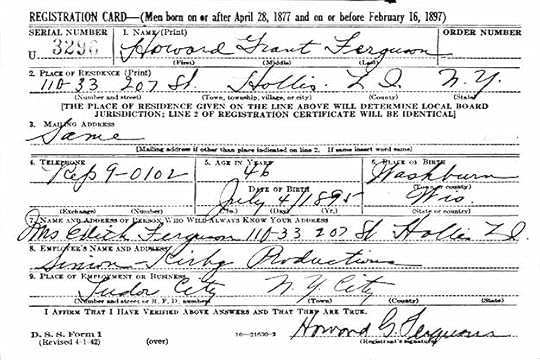 REGISTRATION CARD—(Men born on or after April 28, 1877 and on or before February 16, 1897)
SERIAL NUMBER 1. NAME (Print) ORDER NUMBER
U 3296 Howard Grant Ferguson
(First) (Middle) (Last)
2. PLACE OF RESIDENCE (Print)
110-33 207 St. Hollis L I N.Y.
(Number and street) (Town, township, village, or city) (County) (State)
[THE PLACE OF RESIDENCE GIVEN ON THE LINE ABOVE WILL DETERMINE LOCAL BOARD
JURISDICTION; LINE 2 OF REGISTRATION CERTIFICATE WILL BE IDENTICAL]
3. MAILING ADDRESS
Same
[Mailing address if other than place indicated on line 2. If same insert word same]
4. TELEPHONE 5. AGE IN YEARS 6. PLACE OF BIRTH
9-0102 46 Washburn
(Town or county)
DATE OF BIRTH
July 4 1895 Wis.
(Exchange) (Number) (Mo.) (Day) (Yr.) (State or country)
7. NAME AND ADDRESS OF PERSON WHO WILL ALWAYS KNOW YOUR ADDRESS
Mrs Edith Ferguson 110-33 207 St Hollis L.I.
8. EMPLOYER'S NAME AND ADDRESS
Simon Kirby Productions
9. PLACE OF EMPLOYMENT OR BUSINESS
Tudor City N Y City
(Number and street or R. F. D. number) (Town) (County) (State)
I AFFIRM THAT I HAVE VERIFIED ABOVE ANSWERS AND THAT THEY ARE TRUE.
D. S. S. Form 1
(Revised 4-1-42) (over) 16—21630-2 Howard G. Ferguson
(Registrant's signature)